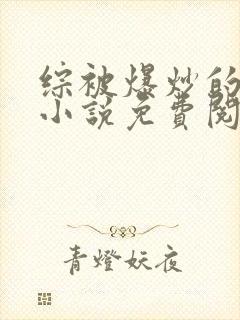 综被爆炒的
小说免費閱
青燈妖夜